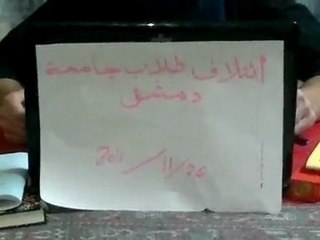 أئتلاف طلاب جامعة
دمشق
2011/11/26